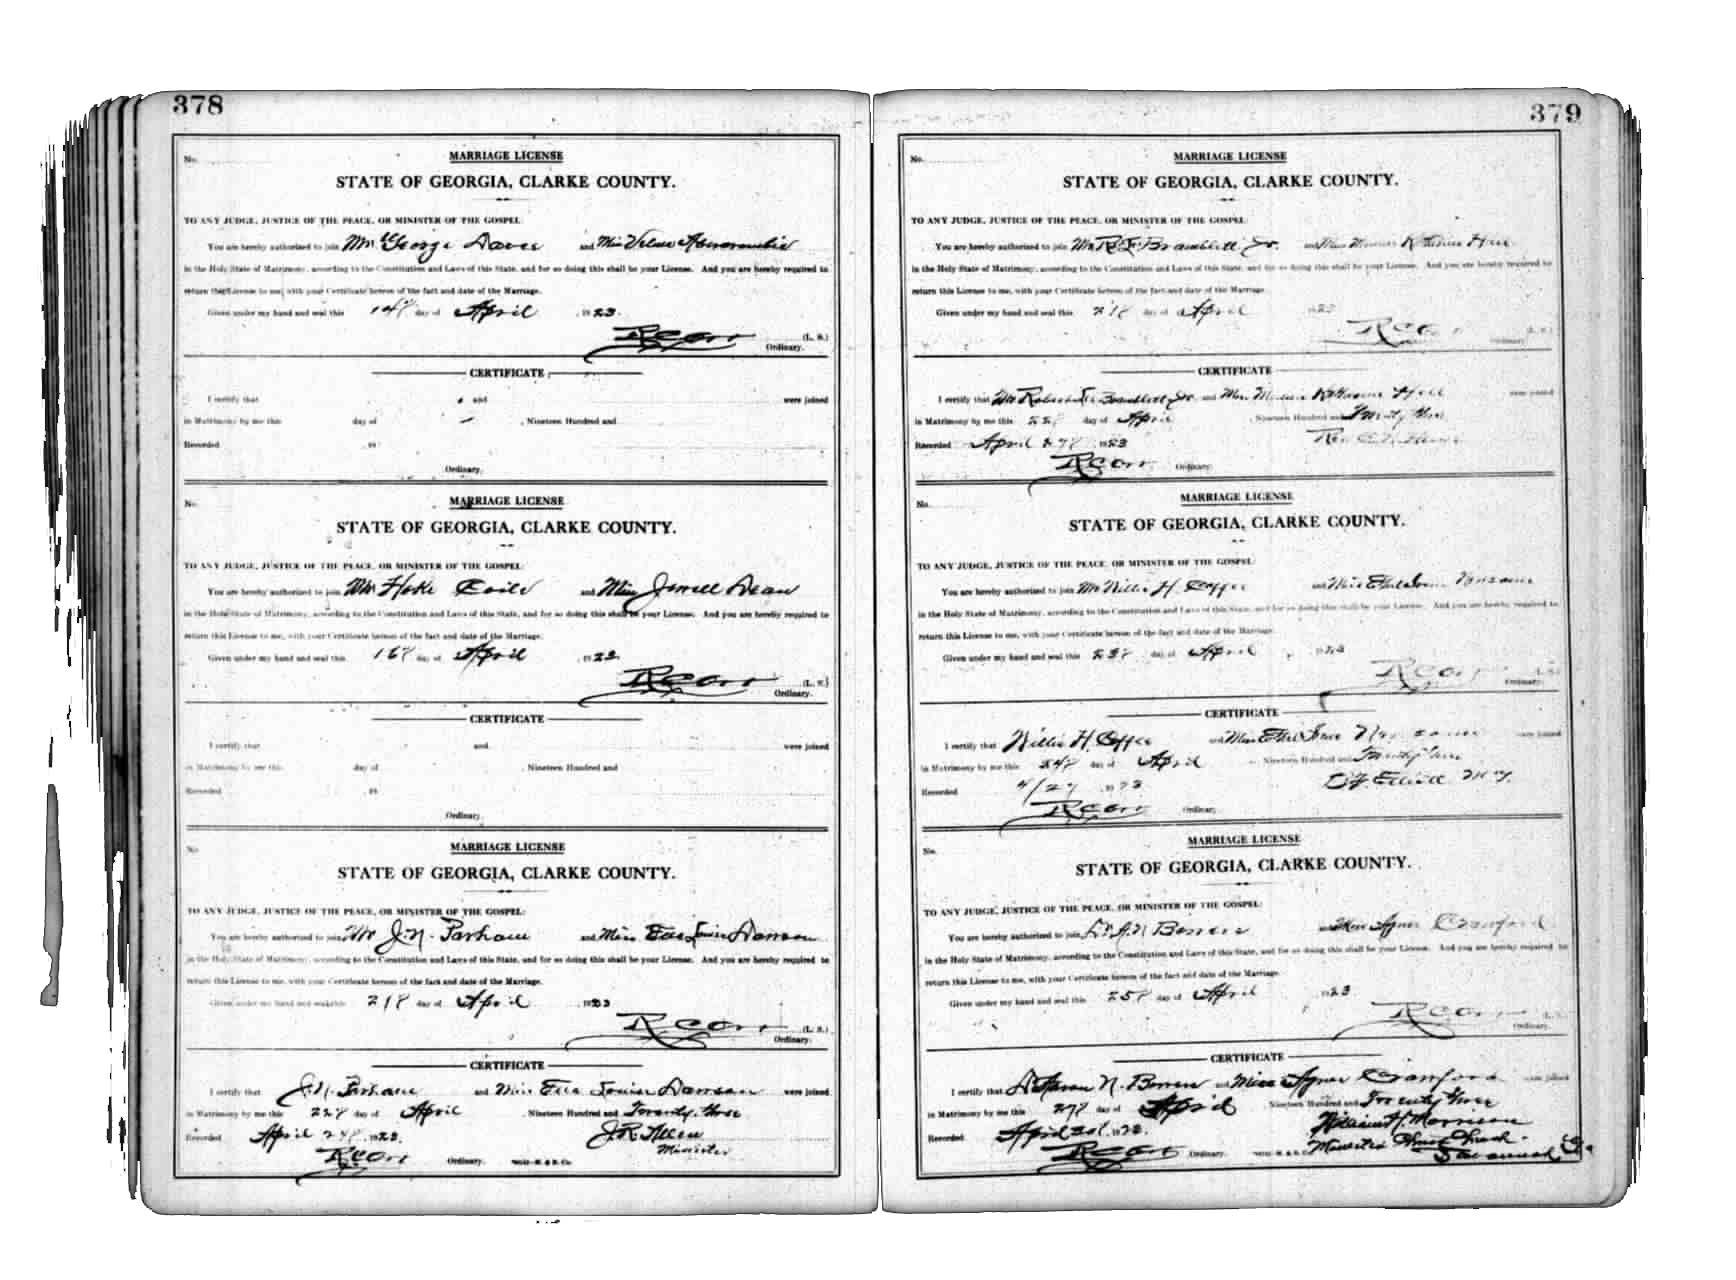 378
No.
MARRIAGE LICENSE
STATE OF GEORGIA, CLARKE COUNTY.
TO ANY JUDGE, JUSTICE OF THE PEACE, OR MINISTER OF THE GOSPEL:
You are hereby authorized to join Mr. George and Miss Velma Abercrombie
in the Holy State of Matrimony, according to the Constitution and Laws of this State, and for so doing this shall be your License. And you are hereby required to
return this License to me, with your Certificate hereon of the fact and date of the Marriage.
Given under my hand and seal this 14th day of April , 1923.
R C Orr (L. S.)
Ordinary.
CERTIFICATE
I certify that and were joined
in Matrimony by me this day of , Nineteen Hundred and
Recorded , 19
Ordinary.
No.
MARRIAGE LICENSE
STATE OF GEORGIA, CLARKE COUNTY.
TO ANY JUDGE, JUSTICE OF THE PEACE, OR MINISTER OF THE GOSPEL:
You are hereby authorized to join Mr Hoke Coile and Miss Jewell Dean
in the Holy State of Matrimony, according to the Constitution and Laws of this State, and for so doing this shall be your License. And you are hereby required to
return this License to me, with your Certificate hereon of the fact and date of the Marriage.
Given under my hand and seal this 16th day of April 1923.
R C Orr (L. S.)
Ordinary.
CERTIFICATE
I certify that and were joined
in Matrimony by me this day of , Nineteen Hundred and
Recorded , 19
Ordinary.
No.
MARRIAGE LICENSE
STATE OF GEORGIA, CLARKE COUNTY.
TO ANY JUDGE, JUSTICE OF THE PEACE, OR MINISTER OF THE GOSPEL:
You are hereby authorized to join Mr J. N. Parham and Miss Louise Dawson
in the Holy State of Matrimony, according to the Constitution and Laws of this State, and for so doing this shall be your License. And you are hereby required to
return this License to me, with your Certificate hereon of the fact and date of the Marriage.
Given under my hand and seal this 21st day of April , 1923
R C Orr (L. S.)
Ordinary.
CERTIFICATE
I certify that J. N. Parham and Miss Louise Dawson were joined
in Matrimony by me this 22d day of April , Nineteen Hundred and Twenty three
Recorded April 24th 1923. J. R. Allen
R C Orr Ordinary. Minister
379
No.
MARRIAGE LICENSE
STATE OF GEORGIA, CLARKE COUNTY.
TO ANY JUDGE, JUSTICE OF THE PEACE, OR MINISTER OF THE GOSPEL:
You are hereby authorized to join Mr Bramblett Jr. and Miss Katherine
in the Holy State of Matrimony, according to the Constitution and Laws of this State, and for so doing this shall be your License. And you are hereby required to
return this License to me, with your Certificate hereon of the fact and date of the Marriage.
Given under my hand and seal this 21st day of April 1923
R C Orr (L. S.)
Ordinary.
CERTIFICATE
I certify that Mr Bramblett Jr. and Miss Katherine were joined
in Matrimony by me this 22d day of April , Nineteen Hundred and Twenty three
Recorded April 27th 1923 Rev.
R C Orr Ordinary.
No.
MARRIAGE LICENSE
STATE OF GEORGIA, CLARKE COUNTY.
TO ANY JUDGE, JUSTICE OF THE PEACE, OR MINISTER OF THE GOSPEL:
You are hereby authorized to join Mr Willie H. Coffee and Miss Ethel
in the Holy State of Matrimony, according to the Constitution and Laws of this State, and for so doing this shall be your License. And you are hereby required to
return this License to me, with your Certificate hereon of the fact and date of the Marriage.
Given under my hand and seal this 23d day of April 1923
R C Orr (L. S.)
Ordinary.
CERTIFICATE
I certify that Willie H. Coffee and Miss Ethel were joined
in Matrimony by me this 24th day of April , Nineteen Hundred and Twenty three
Recorded 4/27 1923 Elliott
R C Orr Ordinary.
No.
MARRIAGE LICENSE
STATE OF GEORGIA, CLARKE COUNTY.
TO ANY JUDGE, JUSTICE OF THE PEACE, OR MINISTER OF THE GOSPEL:
You are hereby authorized to join N Bowen and Miss Agnes Crawford
in the Holy State of Matrimony, according to the Constitution and Laws of this State, and for so doing this shall be your License. And you are hereby required to
return this License to me, with your Certificate hereon of the fact and date of the Marriage.
Given under my hand and seal this 25th day of April 1923
R C Orr (L. S.)
Ordinary.
CERTIFICATE
I certify that N. Bowen and Miss Agnes Crawford were joined
in Matrimony by me this 27th day of April Nineteen Hundred and Twenty three
Recorded April William H. Morrison
R C Orr Ordinary. Minister
Savannah Ga.